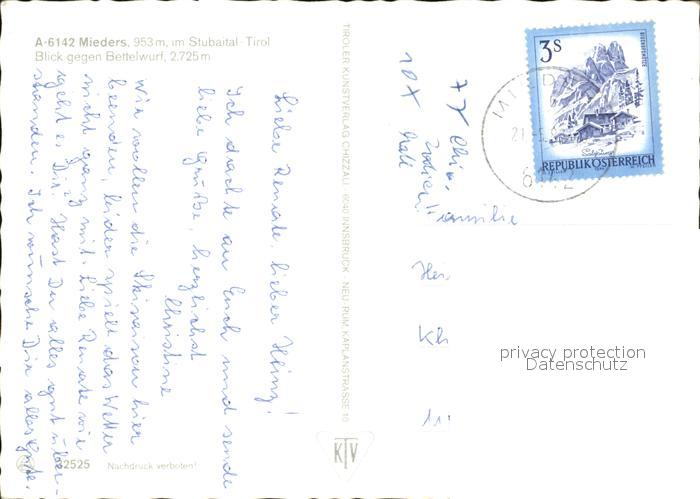 A-6142 Mieders, 953 m, im Stubaital-Tirol
Blick gegen Bettelwurf, 2.725 m
Liebe Renate, lieber Heinz!
Ich dachte an Euch und sende
liebe Grüße, herzlichst
Christine
Wir wollen die Skisaison hier
beenden, leider spielt das Wetter
nicht ganz mit. Liebe Renate wie
geht es Dir? Hast Du alles gut über-
standen. Ich wünsche Dir alles Gute.
TIROLER KUNSTVERLAG CHIZZALI 6040 INNSBRUCK - NEU RUM, KAPLANSTRASSE 10
KTV
32525 Nachdruck verboten!
Familie
Hei
Kl
11
3s
REPUBLIK ÖSTERREICH
6142
privacy protection
Datenschutz